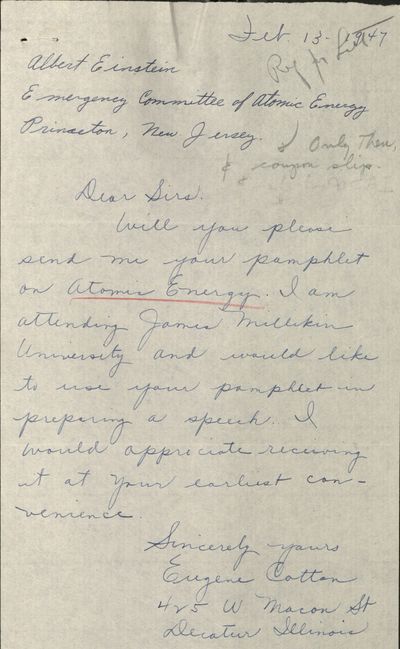 Feb. 13 - 1947
Albert Einstein
Emergency Committee of Atomic Energy
Princeton, New Jersey.
Only Then,
& coupon slip.
Dear Sirs.
Will you please
send me your pamphlet
on Atomic Energy. I am
attending James Millikin
University and would like
to use your pamphlet in
preparing a speech. I
would appreciate receiving
it at your earliest con-
venience.
Sincerely yours
Eugene Cotton
425 W Macon St
Decatur Illinois